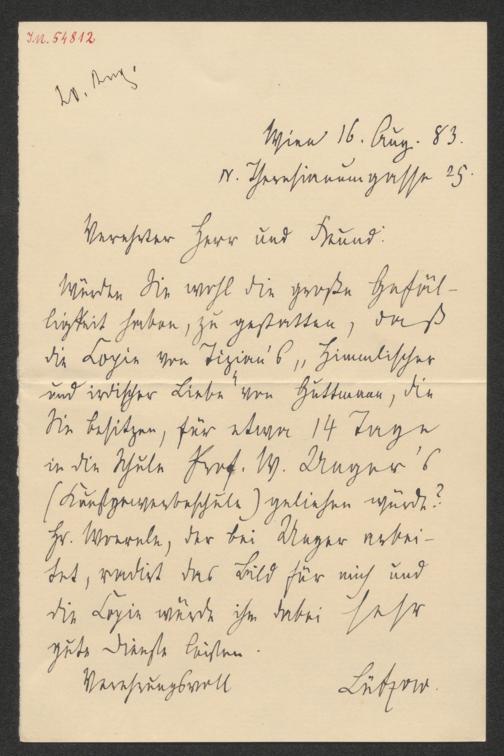 I.N. 54812
20. Aug.
Wien 16. Aug. 83.
IV. Theresianumgasse 25.
Verehrter Herr und Freund!
Würden Sie wohl die große Gefäl-
ligkeit haben, zu gestatten, daß
die Copie von Tizian's „Himmlischer
und irdischer Liebe" von Guttmann, die
Sie besitzen, für etwa 14 Tage
in die Schule Prof. W. Unger's
(Kunstgewerbeschule) geliehen würde?
Hr. Woernle, der bei Unger arbei-
tet, radirt das Bild für mich und
die Copie würde ihm dabei sehr
gute Dienste leisten.
Verehrungsvoll
Lützow.